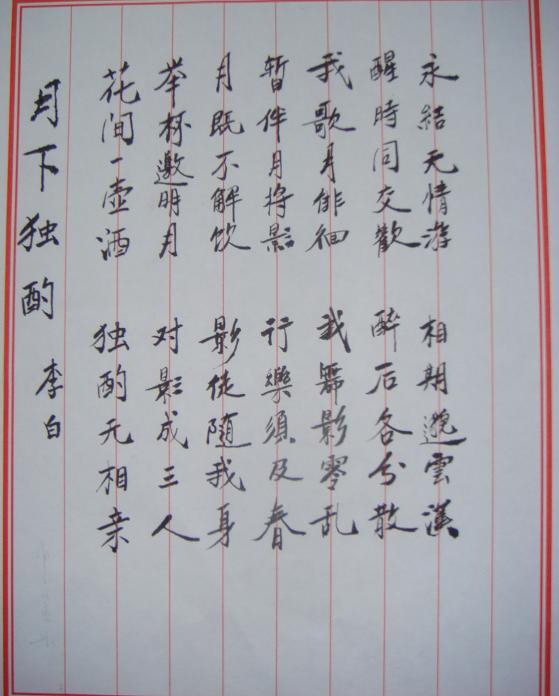 月下独酌
李白
花间一壶酒 独酌无相亲
举杯邀明月 对影成三人
月既不解饮 影徒随我身
暫伴月将影 行樂須及春
我歌月徘徊 我舞影零乱
醒時同交歡 醉后各分散
永結无情游 相期邈雲漢